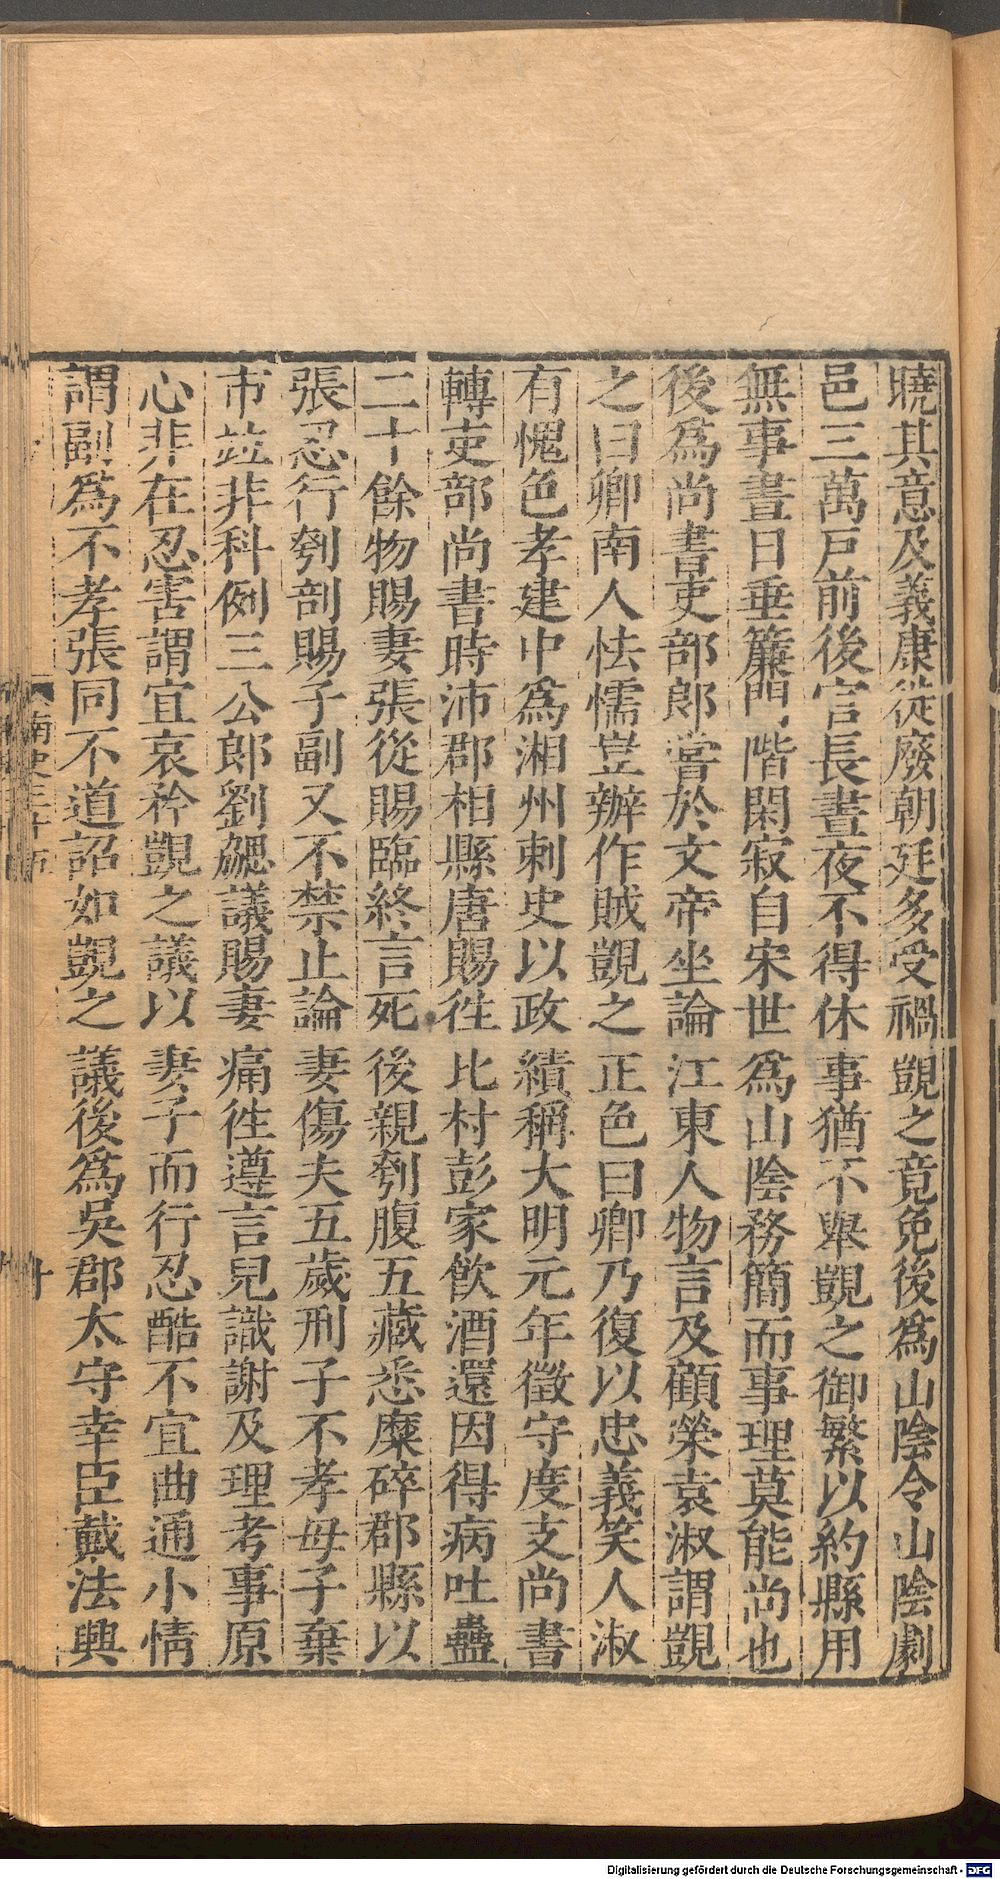 曉其意及義康徙廢朝廷多受禍覬之竟免後爲山陰令山陰劇
邑三萬戶前後官長晝夜不得休事猶不舉覬之御繁以約縣用
無事晝日垂簾門階閑寂自宋世爲山陰務簡而事理莫能尚也
後爲尚書吏部郎嘗於文帝坐論江東人物言及顧榮袁淑謂覬
之曰卿南人怯懦豈辦作賊覬之正色曰卿乃復以忠義笑人淑
有愧色孝建中爲湘州刺史以政績稱大明元年徵守度支尚書
轉吏部尚書時沛郡相縣唐賜往比村彭家飲酒還因得病吐蠱
二十餘物賜妻張從賜臨終言死後親刳腹五藏悉糜碎郡縣以
張忍行刳剖賜子副又不禁止論妻傷夫五歲刑子不孝母子棄
市竝非科例三公郎劉勰議賜妻痛往遵言兒識謝及理考事原
心非在忍害謂宜哀矜覬之議以妻子而行忍酷不宜曲通小情
謂副爲不孝張同不道詔如覬之議後爲吳郡太守幸臣戴法興
南史三十五
十
Digitalisierung gefördert durch die Deutsche Forschungsgemeinschaft - DFG